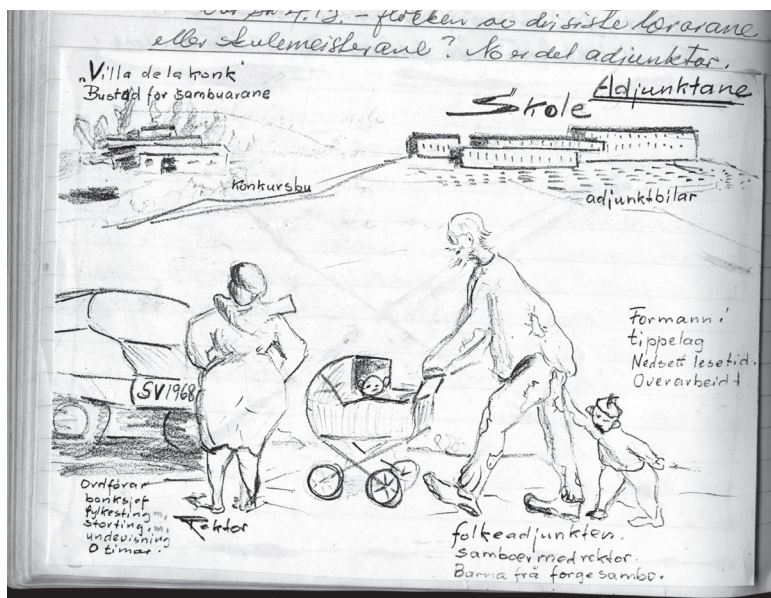 4.13. – flokken av dei siste lærarane
eller skulemeisterane? No er det adjunktar.
Adjunktane
"Villa de la konk"
Bustad for sambuarane
Skole
konkursbu
adjunktbilar
Formann i
tippelag
Nedsett lesetid.
Overarbeidt.
SV1968
Ordførar
banksjef
fylkesting m.
storting.m.
undevisning
0 timar.
Rektor
folkeadjunkten.
Samboer med rektor.
Barna frå forge sambo.